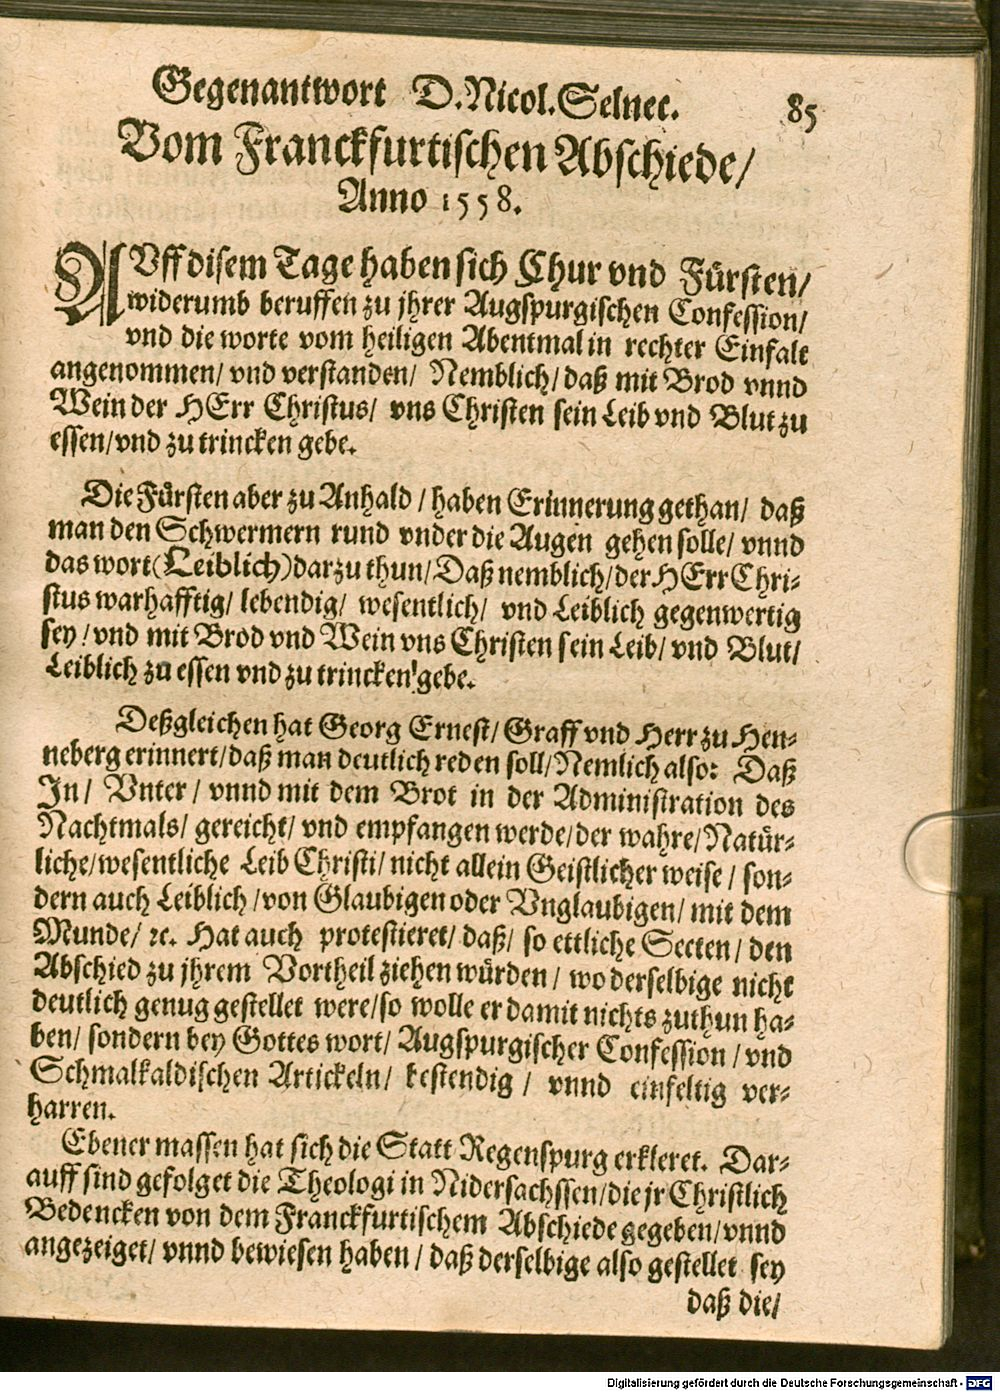 Gegenantwort D. Nicol. Selnec. 85
Vom Franckfurtischen Abschiede/
Anno 1558.
AUff disem Tage haben sich Chur vnd Fürsten/
widerumb beruffen zu jhrer Augspurgischen Confession/
vnd die worte vom heiligen Abentmal in rechter Einfalt
angenommen/ vnd verstanden/ Nemblich/ daß mit Brod vnnd
Wein der HErr Christus/ vns Christen sein Leib vnd Blut zu
essen/ vnd zu trincken gebe.
Die Fürsten aber zu Anhald / haben Erinnerung gethan/ daß
man den Schwermern rund vnder die Augen gehen solle/ vnnd
das wort (Leiblich) darzu thun/ Daß nemblich/ der HErr Chri-
stus warhafftig/ lebendig/ wesentlich/ vnd Leiblich gegenwertig
sey / vnd mit Brod vnd Wein vns Christen sein Leib/ vnd Blut/
Leiblich zu essen vnd zu trincken gebe.
Deßgleichen hat Georg Ernest/ Graff vnd Herr zu Hen-
neberg erinnert/ daß man deutlich reden soll/ Nemlich also: Daß
In/ Vnter / vnnd mit dem Brot in der Administration des
Nachtmals/ gereicht/ vnd empfangen werde/ der wahre/ Natür-
liche/ wesentliche Leib Christi/ nicht allein Geistlicher weise / son-
dern auch Leiblich / von Glaubigen oder Vnglaubigen/ mit dem
Munde/ ꝛc. Hat auch protestieret/ daß/ so ettliche Secten / den
Abschied zu jhrem Vortheil ziehen würden / wo derselbige nicht
deutlich genug gestellet were/ so wolle er damit nichts zuthun ha-
ben/ sondern bey Gottes wort/ Augspurgischer Confession / vnd
Schmalkaldischen Artickeln/ bestendig / vnnd einfeltig ver-
harren.
Ebener massen hat sich die Statt Regenspurg erkleret. Dar-
auff sind gefolget die Theologi in Nidersachssen/ die jr Christlich
Bedencken von dem Franckfurtischem Abschiede gegeben/ vnnd
angezeiget/ vnnd bewiesen haben / daß derselbige also gestellet sey
daß die/
Digitalisierung gefördert durch die Deutsche Forschungsgemeinschaft - DFG